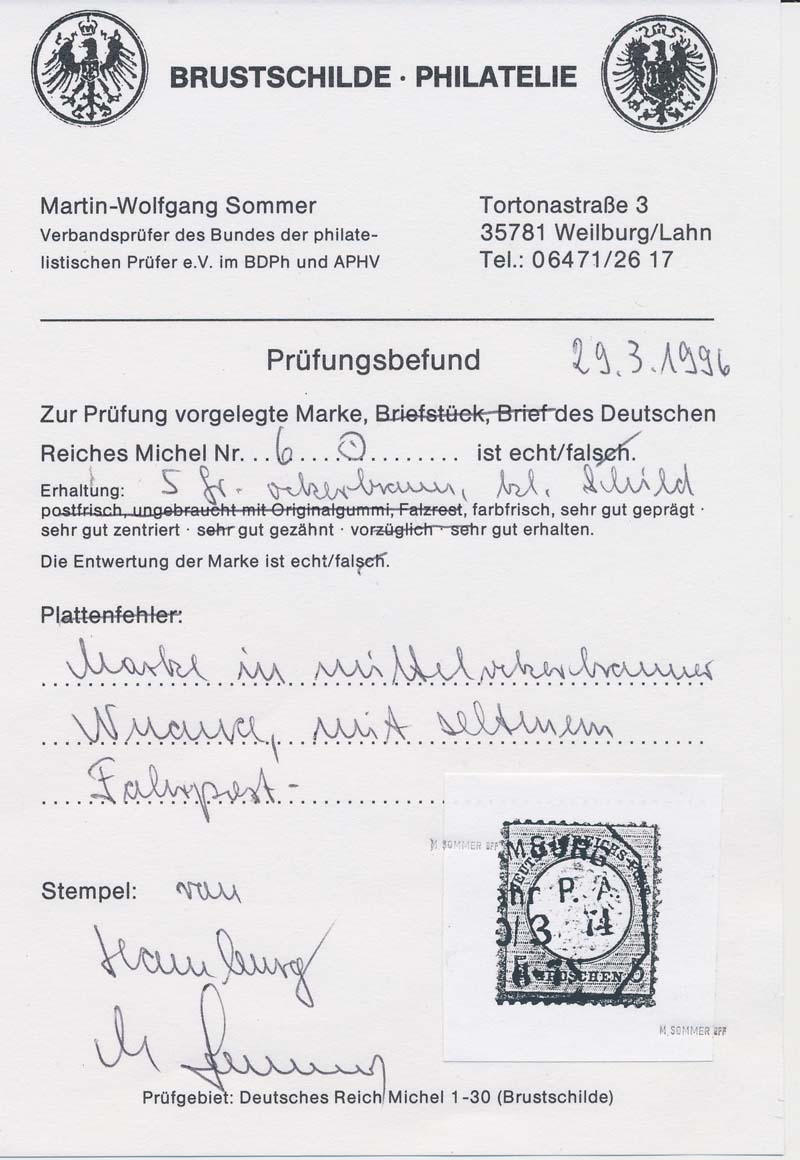 BRUSTSCHILDE · PHILATELIE
Martin-Wolfgang Sommer
Verbandsprüfer des Bundes der philate-
listischen Prüfer e.V. im BDPh und APHV
Tortonastraße 3
35781 Weilburg/Lahn
Tel.: 06471/26 17
Prüfungsbefund 29.3.1996
Zur Prüfung vorgelegte Marke, Briefstück, Brief des Deutschen
Reiches Michel Nr. . . 6 . . . ⊙ . . . . . . . . ist echt/falsch.
Erhaltung: 5 Gr. ockerbraun, kl. Schild
postfrisch, ungebraucht mit Originalgummi, Falzrest, farbfrisch, sehr gut geprägt ·
sehr gut zentriert · sehr gut gezähnt · vorzüglich · sehr gut erhalten.
Die Entwertung der Marke ist echt/falsch.
Plattenfehler:
Marke in mittelockerbrauner
Nuance, mit seltenem
Fahrpost-
M. SOMMER BPP
MBURG
hr P. A.
0/3 74
GROSCHEN
M. SOMMER BPP
Stempel: von
Hamburg
M Sommer
Prüfgebiet: Deutsches Reich Michel 1-30 (Brustschilde)